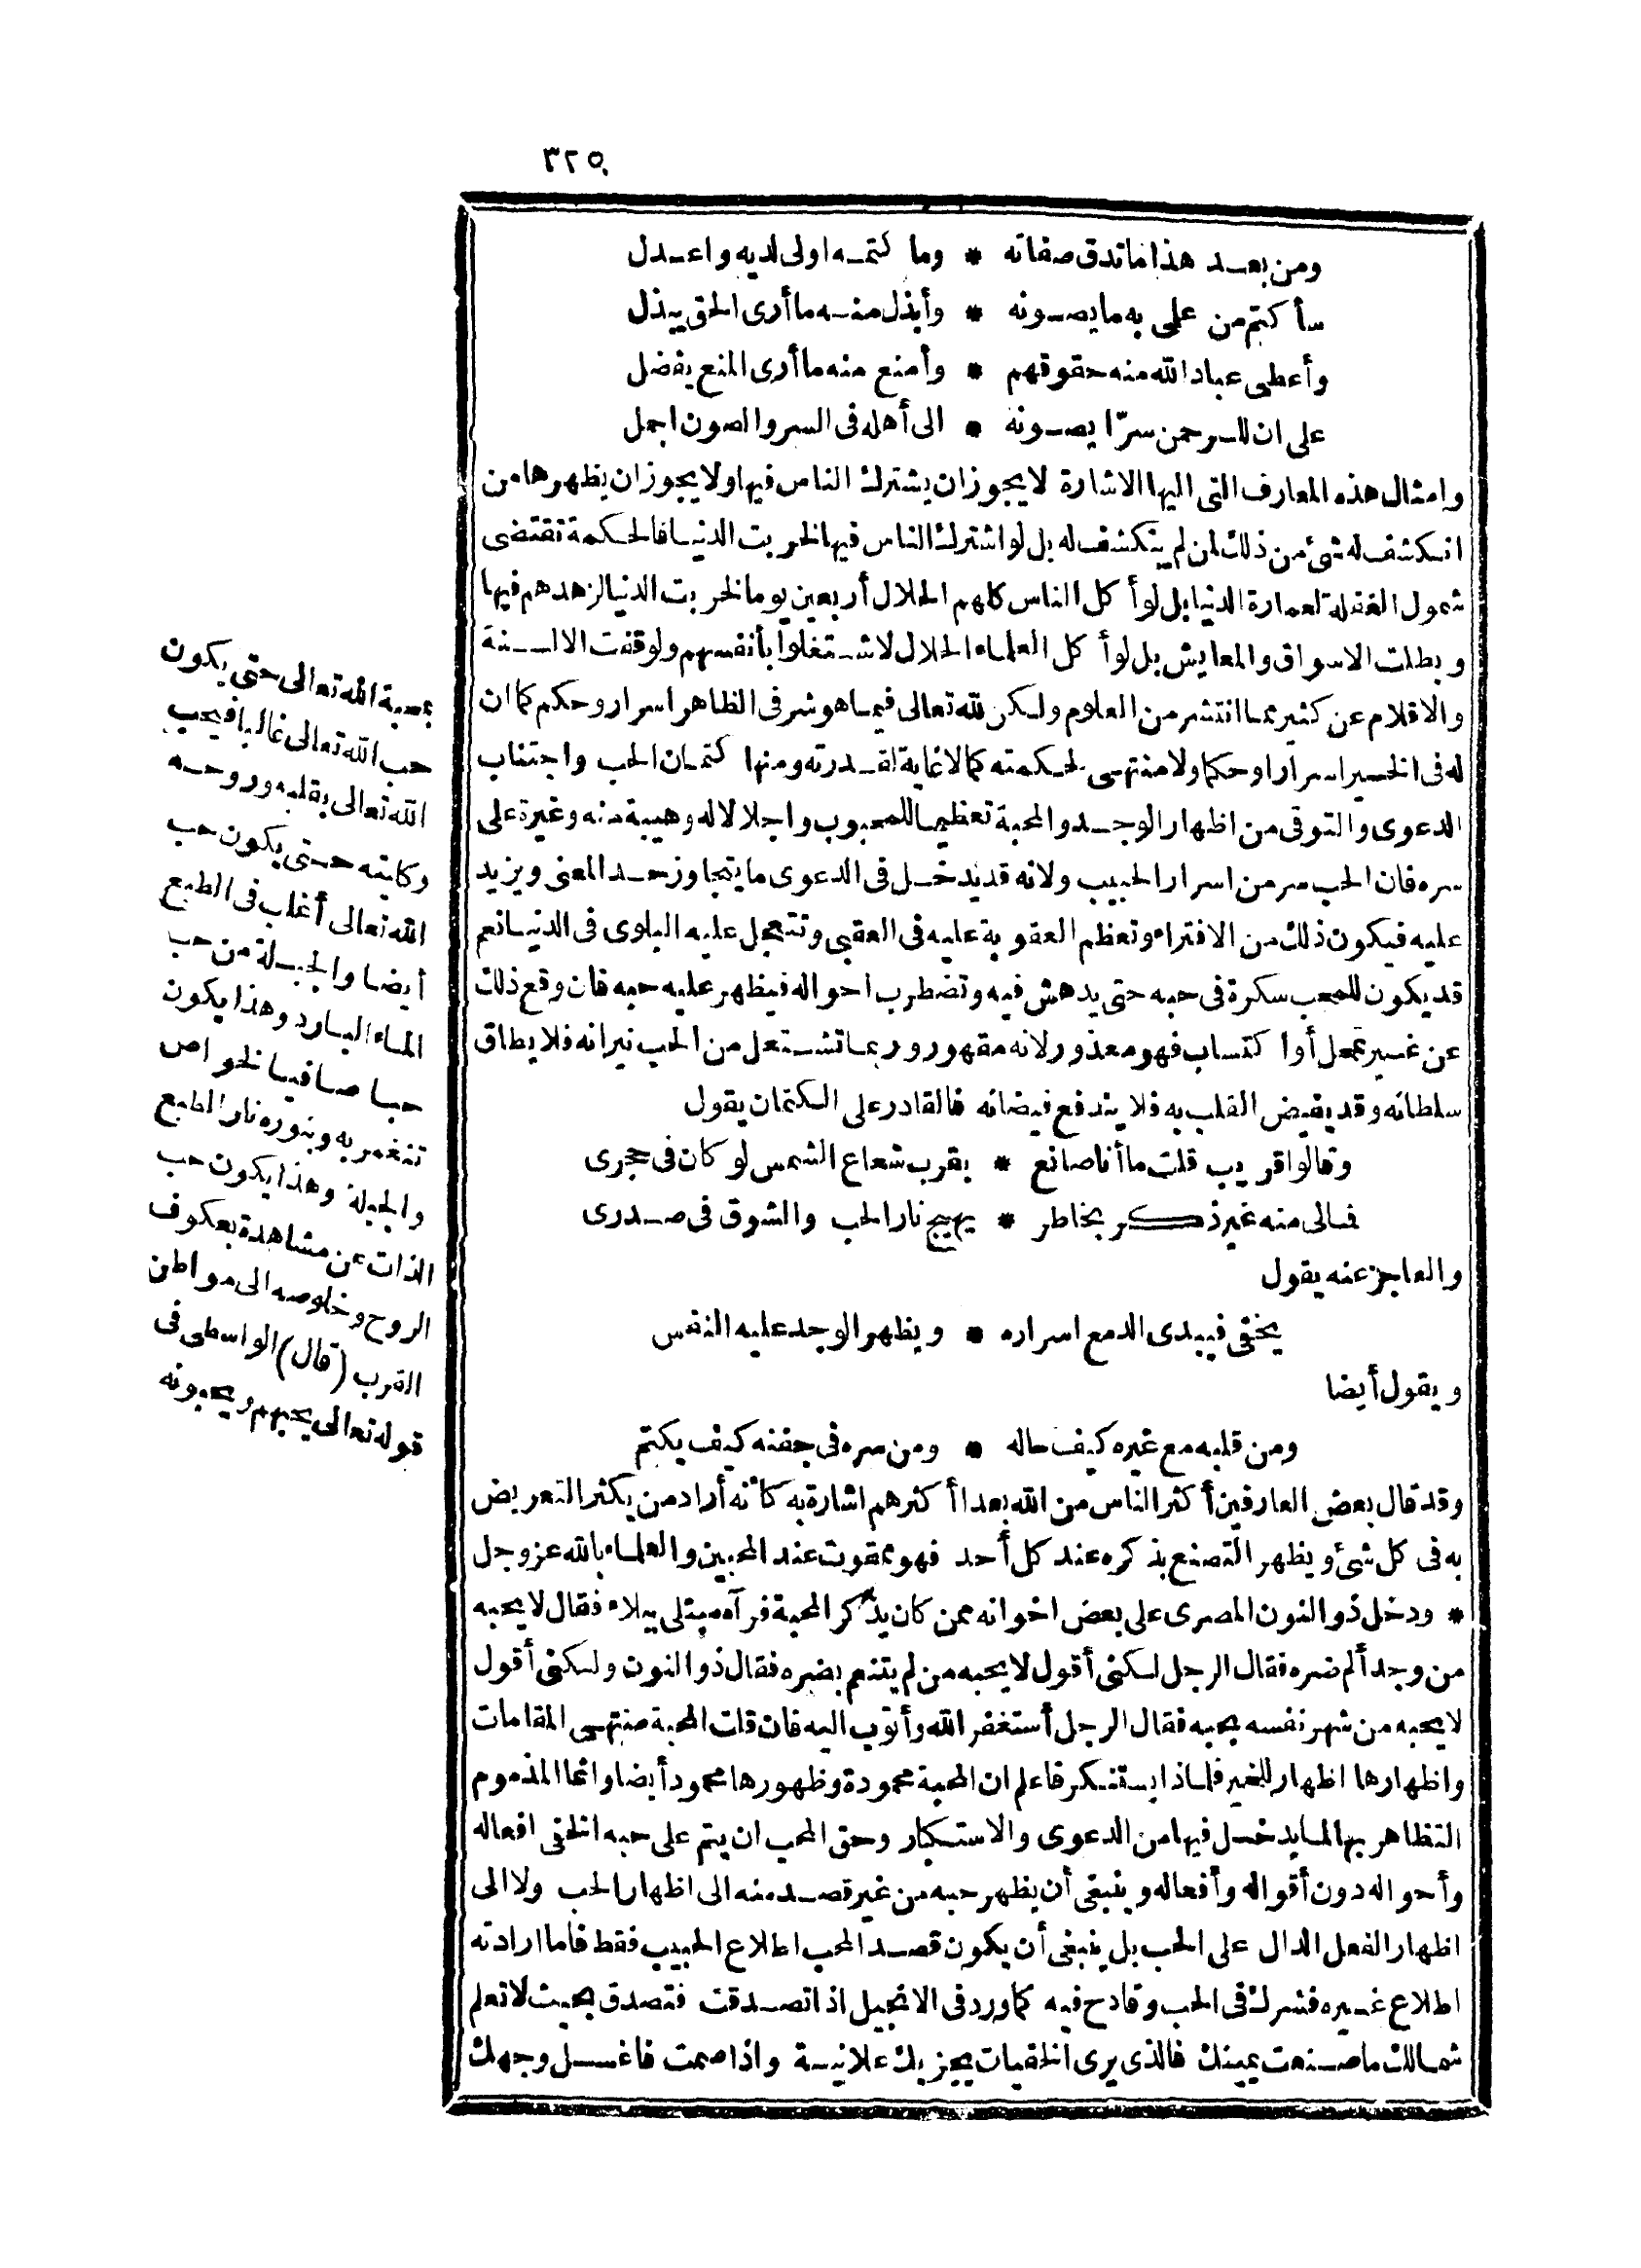 ٣٢٥
ومن بعد هذا ما تدق صفاته * وما كتمه اولى لديه واعدل
سأكتم من علمى به ما يصونه * وأبذل منه ما أرى الحق يبذل
وأعطى عباد الله منه حقوقهم * وأمنع منه ما أرى المنع يفضل
على ان للرحمن سرّا يصونه * الى أهله فى السر والصون اجمل
وامثال هذه المعارف التى اليها الاشارة لا يجوز ان يشترك الناس فيها ولا يجوز ان يظهرها من
انكشف له شئ من ذلك لمن لم ينكشف له بل لو اشترك الناس فيها لخربت الدنيا فالحكمة تقتضى
شمول الغفلة لعمارة الدنيا بل لو أكل الناس كلهم الحلال أربعين يوما لخربت الدنيا لزهدهم فيها
وبطلت الاسواق والمعايش بل لو أكل العلماء الحلال لاشتغلوا بأنفسهم ولوقفت الالسنة
والاقلام عن كثير مما انتشر من العلوم ولكن لله تعالى فيما هو شر فى الظاهر اسرار وحكم كما ان
له فى الخير اسرارا وحكما ولا منتهى لحكمته كما لا غاية لقدرته ومنها كتمان الحب واجتناب
الدعوى والتوقى من اظهار الوجد والمحبة تعظيما للمحبوب واجلالا له وهيبة منه وغيرة على
سره فان الحب سر من اسرار الحبيب ولانه قد يدخل فى الدعوى ما يتجاوز حد المعنى ويزيد
عليه فيكون ذلك من الافتراء وتعظم العقوبة عليه فى العقبى وتتعجل عليه البلوى فى الدنيا نعم
قد يكون للمحب سكرة فى حبه حتى يدهش فيه وتضطرب احواله فيظهر عليه حبه فان وقع ذلك
عن غير تمحل أو اكتساب فهو معذور لانه مقهور وربما تشتعل من الحب نيرانه فلا يطاق
سلطانه وقد يفيض القلب به فلا يندفع فيضانه فالقادر على الكتمان يقول
وقالوا قريب قلت ما أنا صانع * بقرب شعاع الشمس لو كان فى حجرى
فمالى منه غير ذكر بخاطر * يهيج نار الحب والشوق فى صدرى
والعاجز عنه يقول
يخفى فيبدى الدمع اسراره * ويظهر الوجد عليه النفس
ويقول أيضا
ومن قلبه مع غيره كيف حاله * ومن سره فى جفنه كيف يكتم
وقد قال بعض العارفين أكثر الناس من الله بعدا أكثرهم اشارة به كأنه أراد من يكثر التعريض
به فى كل شئ ويظهر التصنع بذكره عند كل أحد فهو ممقوت عند المحبين والعلماء بالله عز وجل
* ودخل ذو النون المصرى على بعض اخوانه ممن كان يذكر المحبة فرآه مبتلى ببلاء فقال لا يحبه
من وجد ألم ضره فقال الرجل لكنى أقول لا يحبه من لم يتنعم بضره فقال ذو النون ولكنى أقول
لا يحبه من شهر نفسه بحبه فقال الرجل أستغفر الله وأتوب اليه فان قلت المحبة منتهى المقامات
واظهارها اظهار للخير فلماذا يستنكر فاعلم ان المحبة محمودة وظهورها محمود أيضا وانما المذموم
التظاهر بها لما يدخل فيها من الدعوى والاستكبار وحق المحب ان يتم على حبه الخفى افعاله
وأحواله دون أقواله وأفعاله وينبغى أن يظهر حبه من غير قصد منه الى اظهار الحب ولا الى
اظهار الفعل الدال على الحب بل ينبغى أن يكون قصد المحب اطلاع الحبيب فقط فاما ارادته
اطلاع غيره فشرك فى الحب وقادح فيه كما ورد فى الانجيل اذا تصدقت فتصدق بحيث لا تعلم
شمالك ما صنعت يمينك فالذى يرى الخفيات يجزيك علانية واذا صمت فاغسل وجهك
بمحبة الله تعالى حتى يكون
حب الله تعالى غالبا فيحب
الله تعالى بقلبه وروحه
وكليته حتى يكون حب
الله تعالى أغلب فى الطبع
أيضا والجبلة من حب
الماء البارد وهذا يكون
حبا صافيا لخواص
تنغمر به وبنوره نار الطبع
والجبلة وهذا يكون حب
الذات عن مشاهدة بعكوف
الروح وخلوصه الى مواطن
القرب (قال) الواسطى فى
قوله تعالى يحبهم ويحبونه